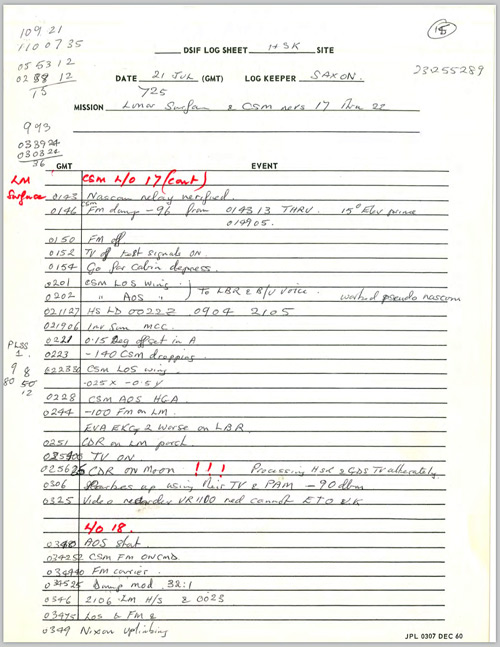 10 9 21
11 00 7 35
05 53 12
02 88 12
15
15
DSIF LOG SHEET HSK SITE
23255289
DATE 21 JUL (GMT) LOG KEEPER SAXON.
725
MISSION Lunar Surface & CSM revs 17 thru 22
993
033924
030324
36
GMT EVENT
LM Surface
CSM L/O 17 (cont)
0143 Nascom relay verified.
0146 CSM FM dump -96 from 014313 THRU. 15° Elev
014905.
0150 FM off
0152 TV of test signals on.
0154 Go for Cabin depress.
0201 CSM LOS wing
0202 " AOS " } To LBR & B/U Voice. worked pseudo nascom
021127 HS LD 0022Z 0904 2105
021906 Inv Sum MCC.
0221 0.15 Deg offset in A
PLSS 1.
0223 -140 CSM dropping.
9 8
80 50
12
022330 CSM LOS wing.
.025X -0.5Y
0228 CSM AOS HGA
0244 -100 FM on LM.
EVA EKG 2 Worse on LBR.
0251 CDR on LM porch.
TV ON.
025625 CDR ON MOON !!! Processing HSK & GDS TV alternately.
0306 up using this TV & PAM -90 dbm
0325 Video recorder VR1100 red cannot E TO UK
L/O 18.
0340 AOS stat.
034252 CSM FM ON CMD.
034440 FM carrier.
034525 Dump mod. 32:1
0346 2106 LM H/S & 0023
034715 LOS & FM &
0349 Nixon uplinking
JPL 0307 DEC 60